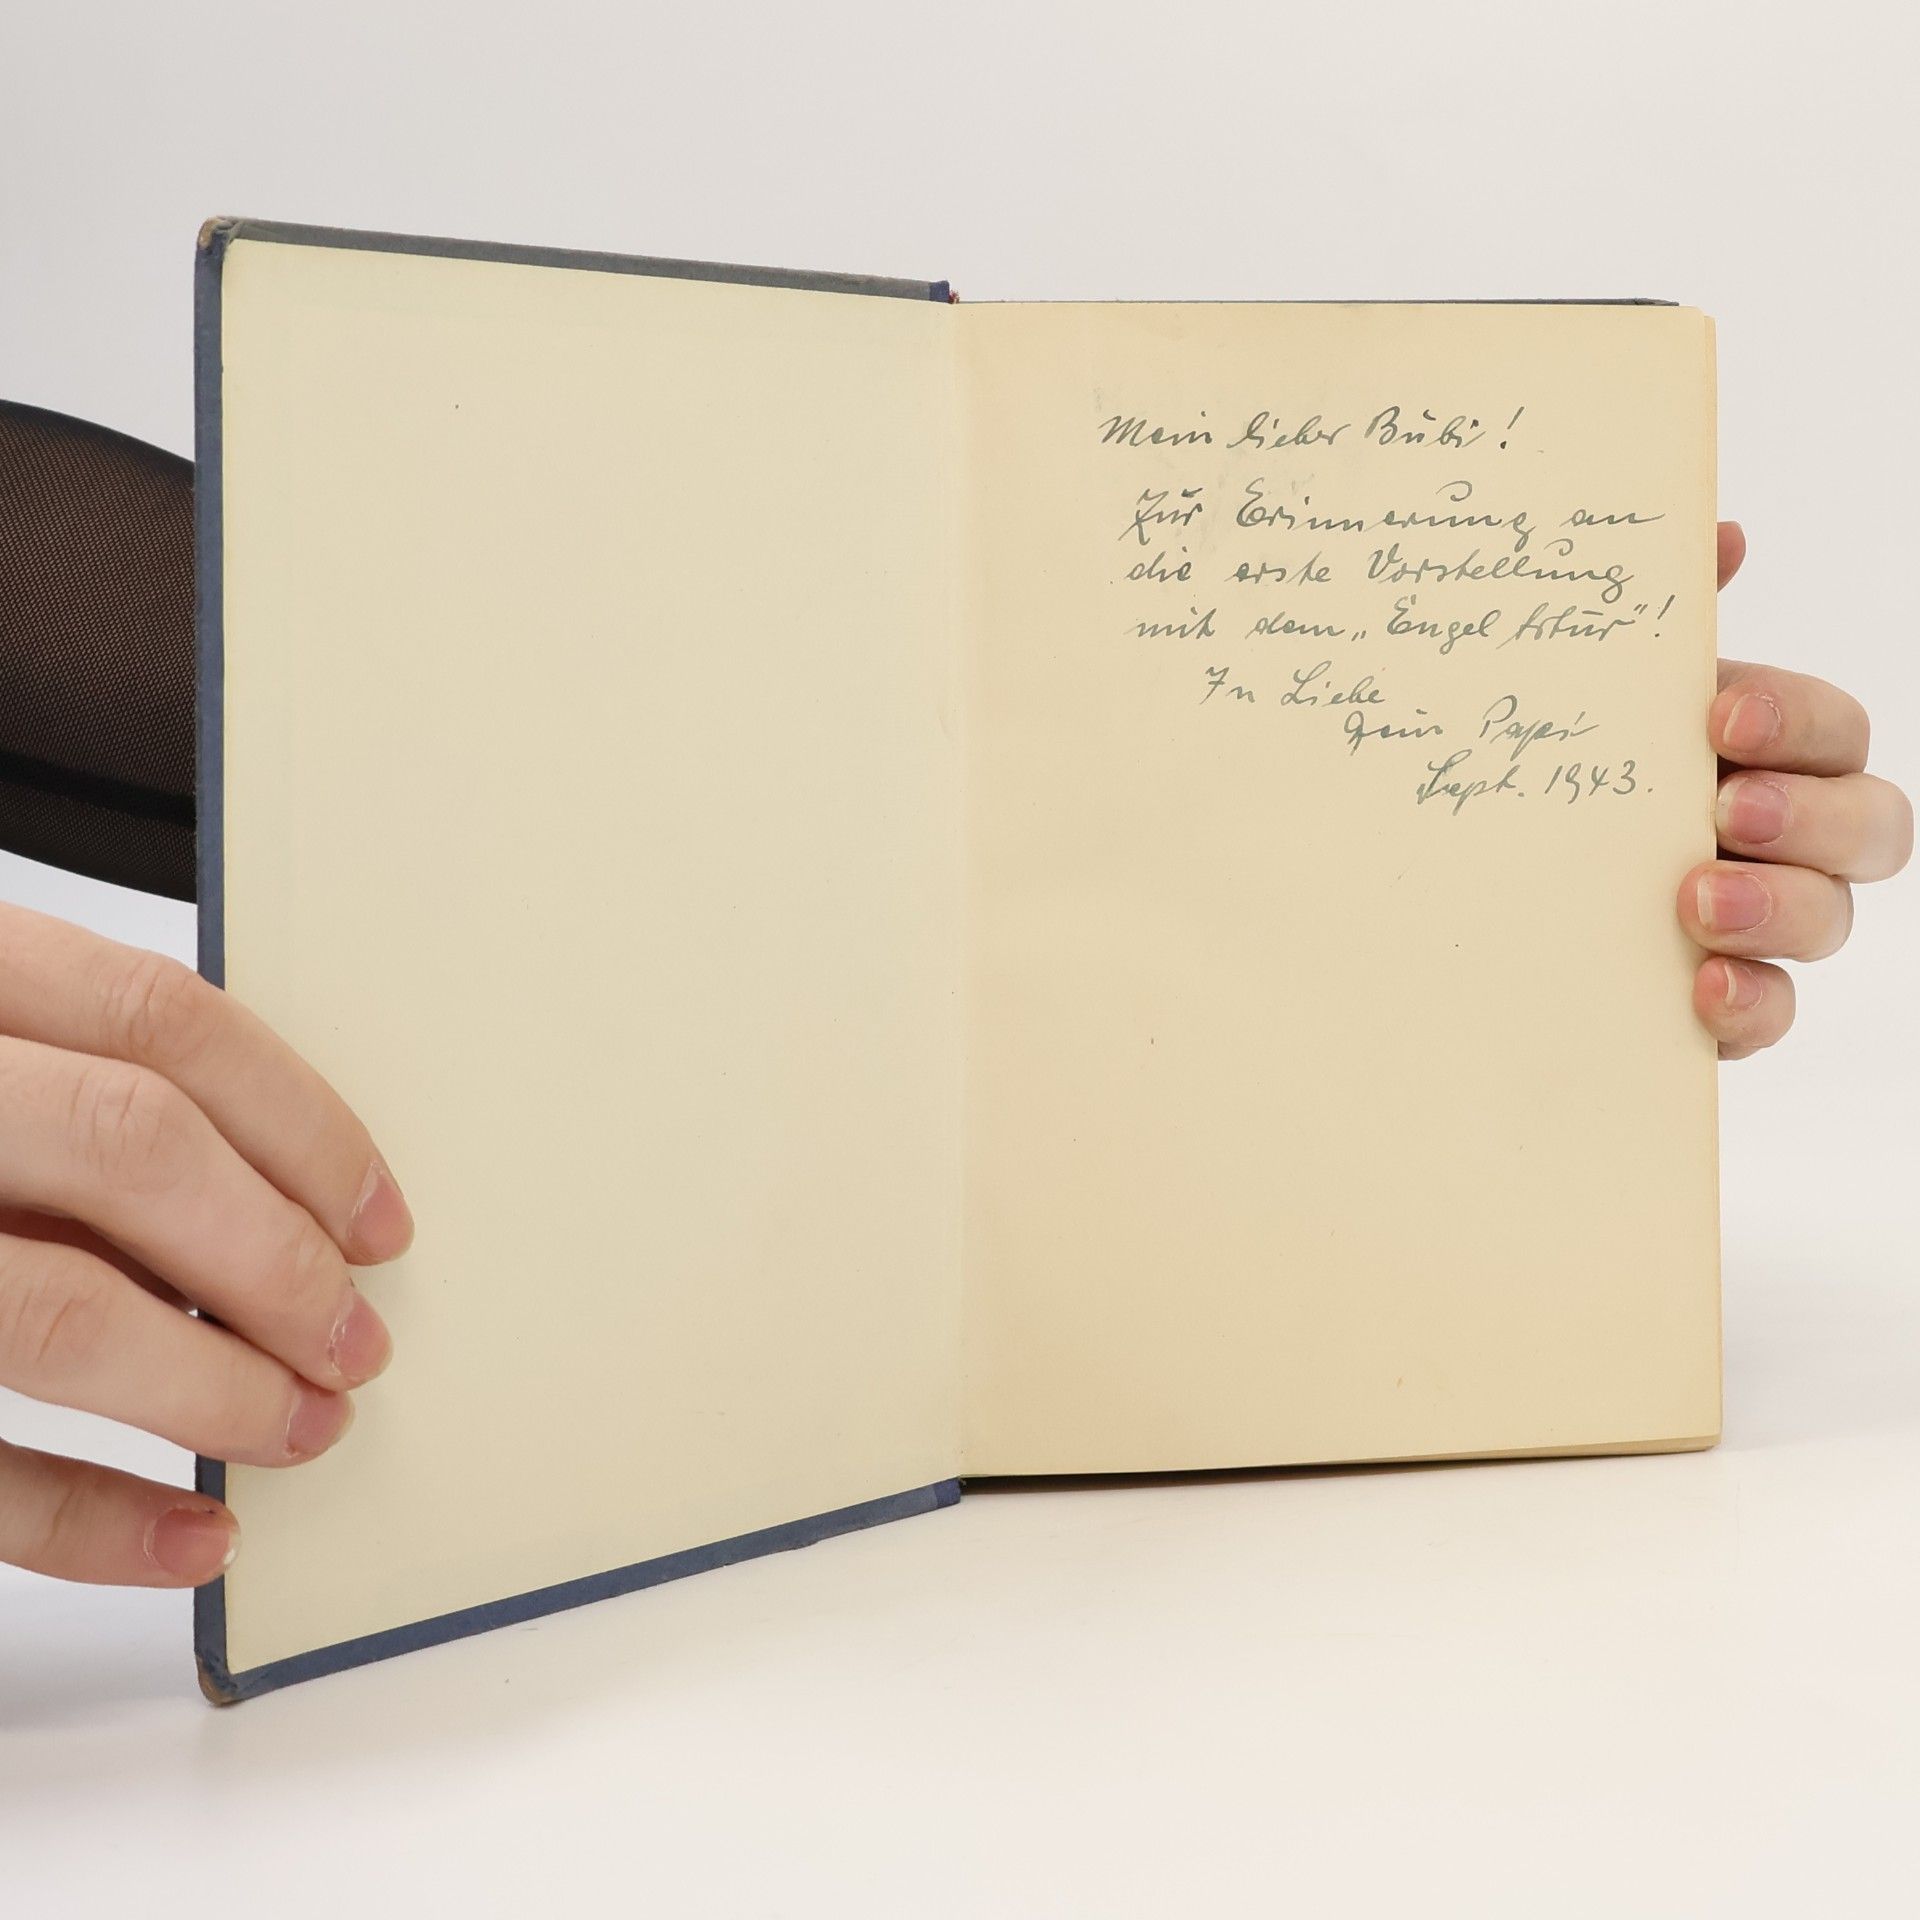 Mein lieber Bubi!
Zur Erinnerung an
die erste Vorstellung
mit dem „Engel Artur"!
In Liebe
Dein Papi
Sept. 1943.